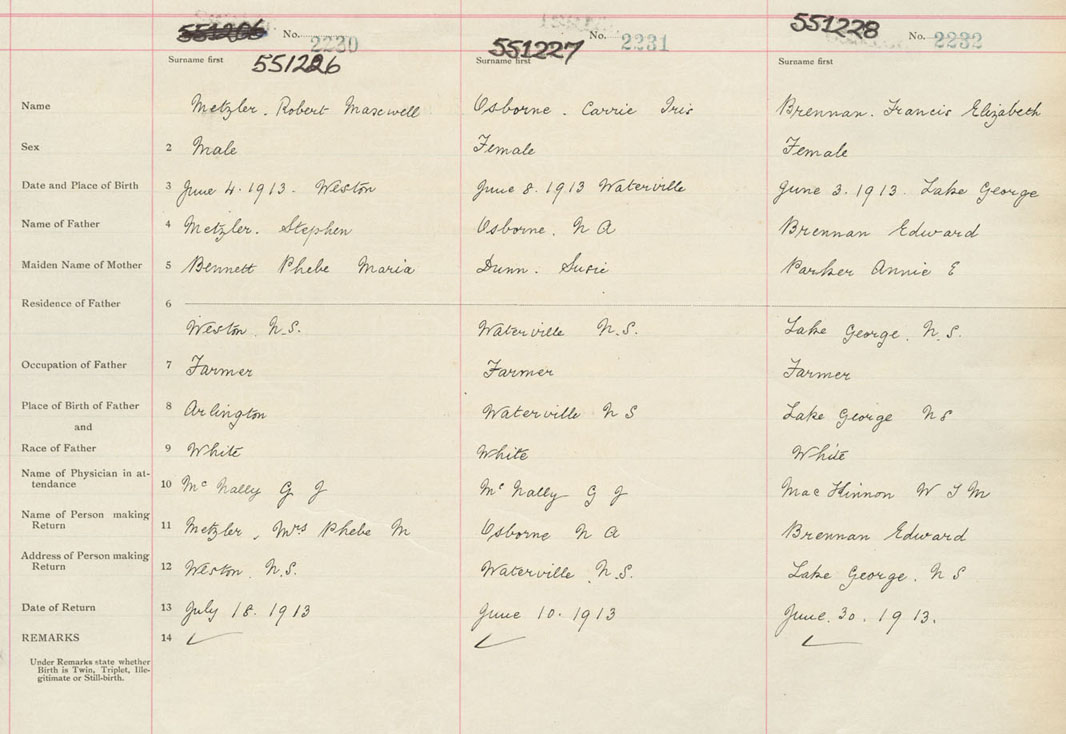 551206 No. 2230 551227 No. 2231 551228 No. 2232
Surname first 551226 Surname first Surname first
Name Metzler. Robert Maxwell Osborne. Carrie Iris Brennan. Francis Elizabeth
Sex 2 Male Female Female
Date and Place of Birth 3 June 4. 1913. Weston June 8. 1913 Waterville June 3. 1913. Lake George
Name of Father 4 Metzler. Stephen Osborne. N A Brennan Edward
Maiden Name of Mother 5 Bennett Phebe Maria Dunn. Susie Parker Annie E
Residence of Father 6
Weston N.S. Waterville N.S. Lake George. N.S.
Occupation of Father 7 Farmer Farmer Farmer
Place of Birth of Father 8 Arlington Waterville N S Lake George N S
and
Race of Father 9 White White White
Name of Physician in at-
tendance 10 Mc Nally G J Mc Nally G J Mac Kinnon W J M
Name of Person making
Return 11 Metzler, Mrs Phebe M Osborne N A Brennan Edward
Address of Person making
Return 12 Weston. N.S. Waterville. N.S. Lake George. N S
Date of Return 13 July 18. 1913 June 10. 1913 June. 30. 1913.
REMARKS 14
Under Remarks state whether
Birth is Twin, Triplet, Ille-
gitimate or Still-birth.